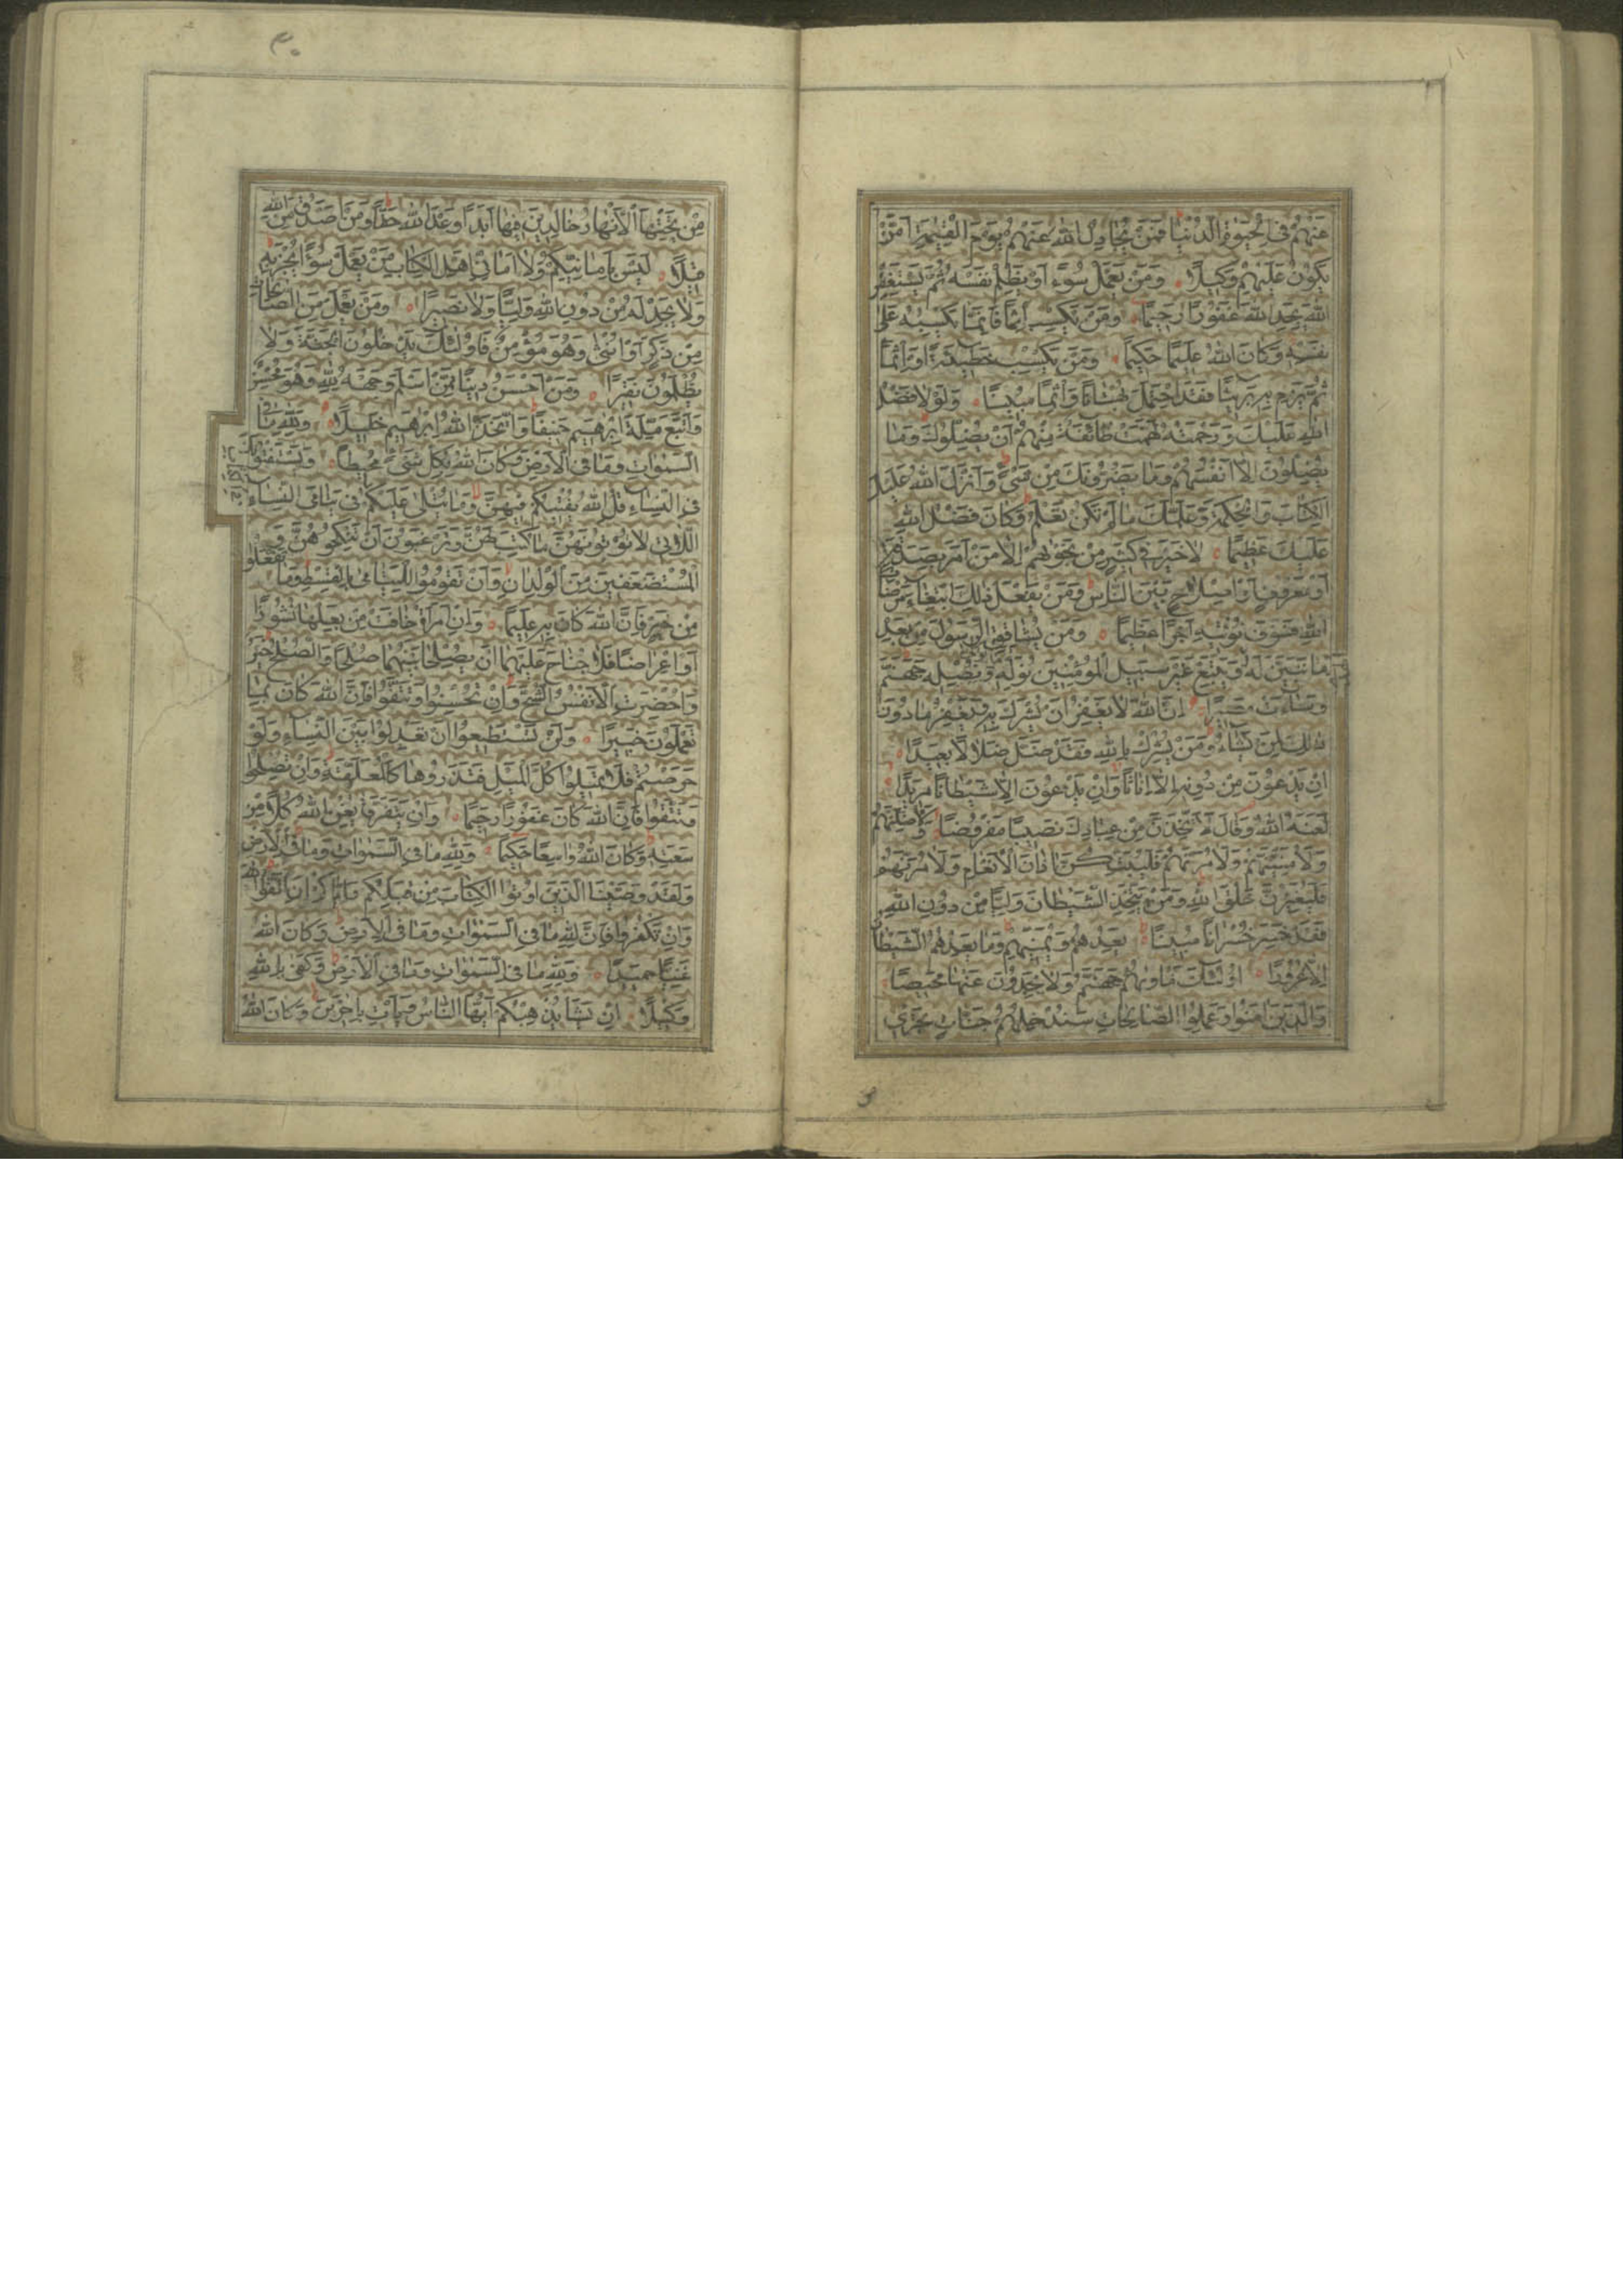 عَنْهُمْ فِي الْحَيٰوةِ الدُّنْيَا فَمَنْ يُجَادِلُ اللهَ عَنْهُمْ يَوْمَ الْقِيٰمَةِ اَمْ مَنْ
يَكُونُ عَلَيْهِمْ وَكِيلًا وَمَنْ يَعْمَلْ سُوءً اَوْ يَظْلِمْ نَفْسَهُ ثُمَّ يَسْتَغْفِرِ
اللهَ يَجِدِ اللهَ غَفُورًا رَحِيمًا وَمَنْ يَكْسِبْ اِثْمًا فَاِنَّمَا يَكْسِبُهُ عَلٰى
نَفْسِهِ وَكَانَ اللهُ عَلِيمًا حَكِيمًا وَمَنْ يَكْسِبْ خَطِيئَةً اَوْ اِثْمًا
ثُمَّ يَرْمِ بِهِ بَرِيئًا فَقَدِ احْتَمَلَ بُهْتَانًا وَاِثْمًا مُبِينًا وَلَوْلَا فَضْلُ
اللهِ عَلَيْكَ وَرَحْمَتُهُ لَهَمَّتْ طَائِفَةٌ مِنْهُمْ اَنْ يُضِلُّوكَ وَمَا
يُضِلُّونَ اِلَّا اَنْفُسَهُمْ وَمَا يَضُرُّونَكَ مِنْ شَيْءٍ وَاَنْزَلَ اللهُ عَلَيْكَ
الْكِتَابَ وَالْحِكْمَةَ وَعَلَّمَكَ مَا لَمْ تَكُنْ تَعْلَمُ وَكَانَ فَضْلُ اللهِ
عَلَيْكَ عَظِيمًا لَا خَيْرَ فِي كَثِيرٍ مِنْ نَجْوٰيهُمْ اِلَّا مَنْ اَمَرَ بِصَدَقَةٍ
اَوْ مَعْرُوفٍ اَوْ اِصْلَاحٍ بَيْنَ النَّاسِ وَمَنْ يَفْعَلْ ذٰلِكَ ابْتِغَاءَ مَرْضَاتِ
اللهِ فَسَوْفَ نُؤْتِيهِ اَجْرًا عَظِيمًا وَمَنْ يُشَاقِقِ الرَّسُولَ مِنْ بَعْدِ
مَا تَبَيَّنَ لَهُ الْهُدٰى وَيَتَّبِعْ غَيْرَ سَبِيلِ الْمُؤْمِنِينَ نُوَلِّهِ مَا تَوَلّٰى وَنُصْلِهِ جَهَنَّمَ
وَسَاءَتْ مَصِيرًا اِنَّ اللهَ لَا يَغْفِرُ اَنْ يُشْرَكَ بِهِ وَيَغْفِرُ مَا دُونَ
ذٰلِكَ لِمَنْ يَشَاءُ وَمَنْ يُشْرِكْ بِاللهِ فَقَدْ ضَلَّ ضَلَالًا بَعِيدًا
اِنْ يَدْعُونَ مِنْ دُونِهِ اِلَّا اِنَاثًا وَاِنْ يَدْعُونَ اِلَّا شَيْطَانًا مَرِيدًا
لَعَنَهُ اللهُ وَقَالَ لَاَتَّخِذَنَّ مِنْ عِبَادِكَ نَصِيبًا مَفْرُوضًا وَلَاُضِلَّنَّهُمْ
وَلَاُمَنِّيَنَّهُمْ وَلَاٰمُرَنَّهُمْ فَلَيُبَتِّكُنَّ اٰذَانَ الْاَنْعَامِ وَلَاٰمُرَنَّهُمْ
فَلَيُغَيِّرُنَّ خَلْقَ اللهِ وَمَنْ يَتَّخِذِ الشَّيْطَانَ وَلِيًّا مِنْ دُونِ اللهِ
فَقَدْ خَسِرَ خُسْرَانًا مُبِينًا يَعِدُهُمْ وَيُمَنِّيهِمْ وَمَا يَعِدُهُمُ الشَّيْطَانُ
اِلَّا غُرُورًا اُولٰئِكَ مَاْوٰيهُمْ جَهَنَّمُ وَلَا يَجِدُونَ عَنْهَا مَحِيصًا
وَالَّذِينَ اٰمَنُوا وَعَمِلُوا الصَّالِحَاتِ سَنُدْخِلُهُمْ جَنَّاتٍ تَجْرِي
مِنْ تَحْتِهَا الْاَنْهَارُ خَالِدِينَ فِيهَا اَبَدًا وَعْدَ اللهِ حَقًّا وَمَنْ اَصْدَقُ مِنَ اللهِ
قِيلًا لَيْسَ بِاَمَانِيِّكُمْ وَلَا اَمَانِيِّ اَهْلِ الْكِتَابِ مَنْ يَعْمَلْ سُوءًا يُجْزَ بِهِ
وَلَا يَجِدْ لَهُ مِنْ دُونِ اللهِ وَلِيًّا وَلَا نَصِيرًا وَمَنْ يَعْمَلْ مِنَ الصَّالِحَاتِ
مِنْ ذَكَرٍ اَوْ اُنْثٰى وَهُوَ مُؤْمِنٌ فَاُولٰئِكَ يَدْخُلُونَ الْجَنَّةَ وَلَا
يُظْلَمُونَ نَقِيرًا وَمَنْ اَحْسَنُ دِينًا مِمَّنْ اَسْلَمَ وَجْهَهُ لِلّٰهِ وَهُوَ مُحْسِنٌ
وَاتَّبَعَ مِلَّةَ اِبْرٰهِيمَ حَنِيفًا وَاتَّخَذَ اللهُ اِبْرٰهِيمَ خَلِيلًا وَلِلّٰهِ مَا فِي
السَّمٰوَاتِ وَمَا فِي الْاَرْضِ وَكَانَ اللهُ بِكُلِّ شَيْءٍ مُحِيطًا وَيَسْتَفْتُونَكَ
فِي النِّسَاءِ قُلِ اللهُ يُفْتِيكُمْ فِيهِنَّ وَمَا يُتْلٰى عَلَيْكُمْ فِي يَتَامَى النِّسَاءِ
اللَّاتِي لَا تُؤْتُونَهُنَّ مَا كُتِبَ لَهُنَّ وَتَرْغَبُونَ اَنْ تَنْكِحُوهُنَّ وَ
الْمُسْتَضْعَفِينَ مِنَ الْوِلْدَانِ وَاَنْ تَقُومُوا لِلْيَتَامٰى بِالْقِسْطِ وَمَا تَفْعَلُوا
مِنْ خَيْرٍ فَاِنَّ اللهَ كَانَ بِهِ عَلِيمًا وَاِنِ امْرَاَةٌ خَافَتْ مِنْ بَعْلِهَا نُشُوزًا
اَوْ اِعْرَاضًا فَلَا جُنَاحَ عَلَيْهِمَا اَنْ يُصْلِحَا بَيْنَهُمَا صُلْحًا وَالصُّلْحُ خَيْرٌ
وَاُحْضِرَتِ الْاَنْفُسُ الشُّحَّ وَاِنْ تُحْسِنُوا وَتَتَّقُوا فَاِنَّ اللهَ كَانَ بِمَا
تَعْمَلُونَ خَبِيرًا وَلَنْ تَسْتَطِيعُوا اَنْ تَعْدِلُوا بَيْنَ النِّسَاءِ وَلَوْ
حَرَصْتُمْ فَلَا تَمِيلُوا كُلَّ الْمَيْلِ فَتَذَرُوهَا كَالْمُعَلَّقَةِ وَاِنْ تُصْلِحُوا
وَتَتَّقُوا فَاِنَّ اللهَ كَانَ غَفُورًا رَحِيمًا وَاِنْ يَتَفَرَّقَا يُغْنِ اللهُ كُلًّا مِنْ
سَعَتِهِ وَكَانَ اللهُ وَاسِعًا حَكِيمًا وَلِلّٰهِ مَا فِي السَّمٰوَاتِ وَمَا فِي الْاَرْضِ
وَلَقَدْ وَصَّيْنَا الَّذِينَ اُوتُوا الْكِتَابَ مِنْ قَبْلِكُمْ وَاِيَّاكُمْ اَنِ اتَّقُوا اللهَ
وَاِنْ تَكْفُرُوا فَاِنَّ لِلّٰهِ مَا فِي السَّمٰوَاتِ وَمَا فِي الْاَرْضِ وَكَانَ اللهُ
غَنِيًّا حَمِيدًا وَلِلّٰهِ مَا فِي السَّمٰوَاتِ وَمَا فِي الْاَرْضِ وَكَفٰى بِاللهِ
وَكِيلًا اِنْ يَشَاْ يُذْهِبْكُمْ اَيُّهَا النَّاسُ وَيَاْتِ بِاٰخَرِينَ وَكَانَ اللهُ